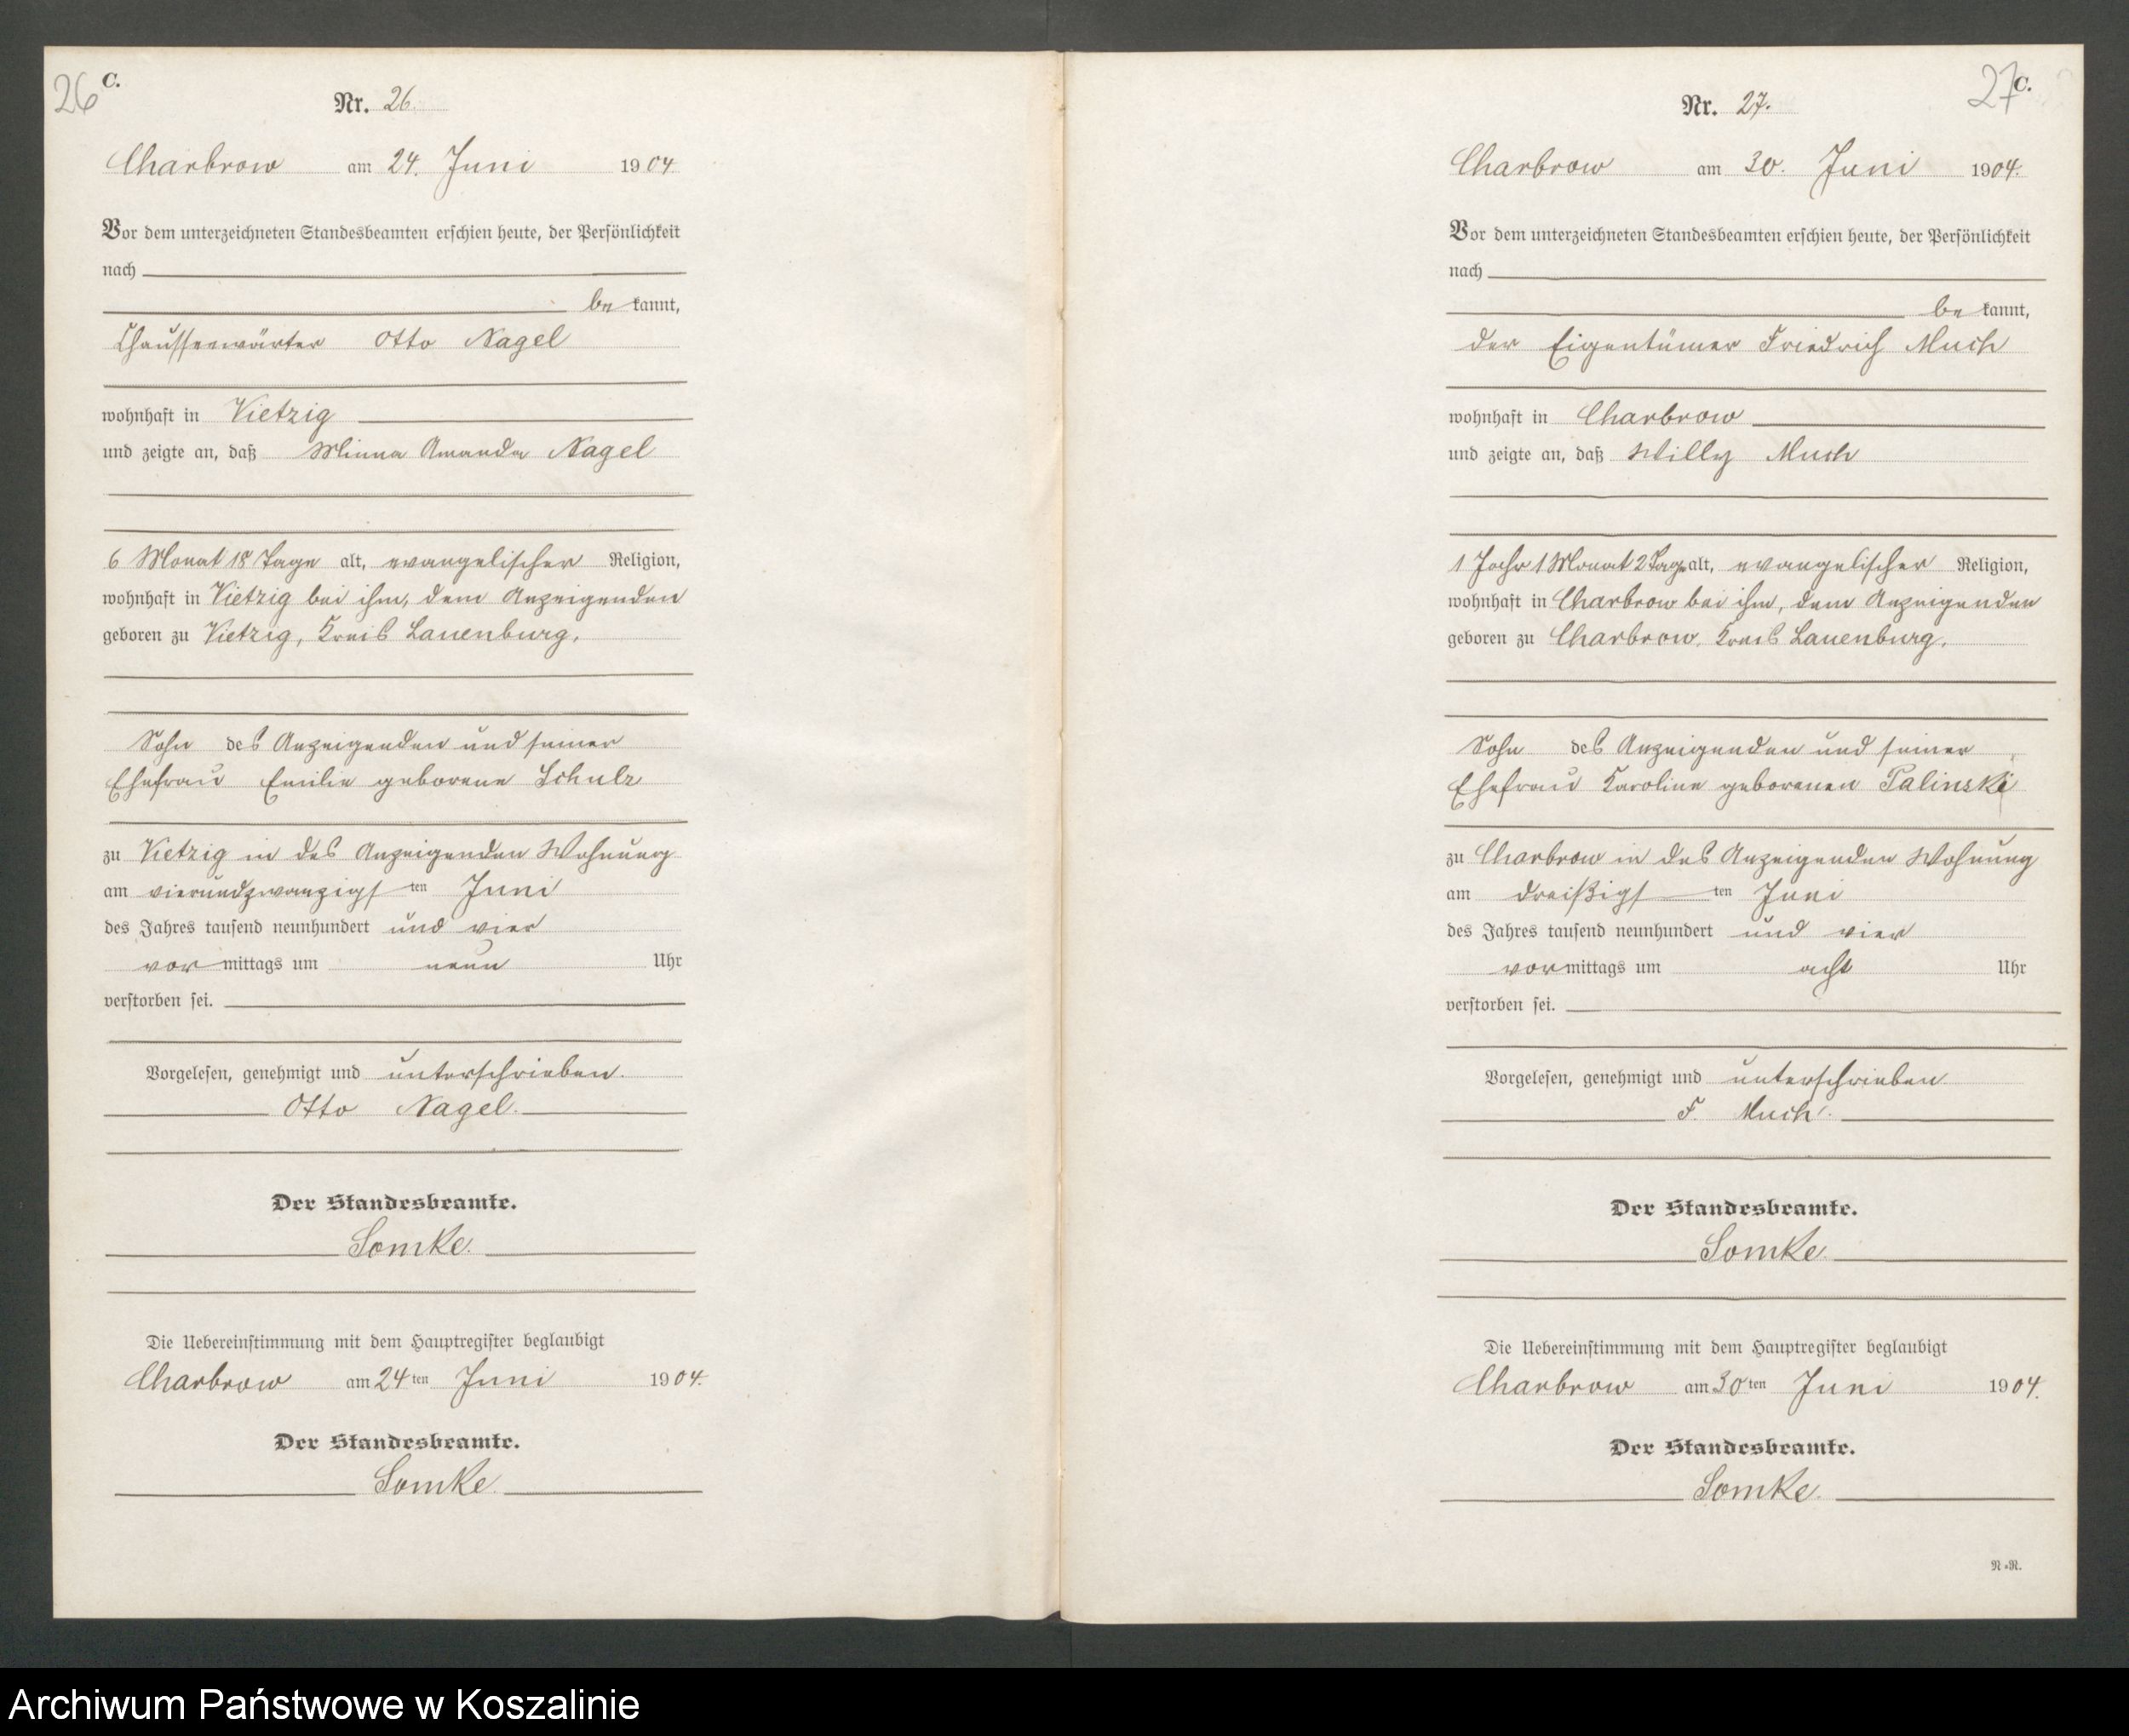 26 C.
Nr. 26.
Charbrow am 24. Juni 1904
Vor dem unterzeichneten Standesbeamten erschien heute, der Persönlichkeit
nach
be kannt,
Chausseewärter Otto Nagel
wohnhaft in Vietzig
und zeigte an, daß Minna Amanda Nagel
6 Monat 18 Tage alt, evangelischer Religion,
wohnhaft in Vietzig bei ihm, dem Anzeigenden
geboren zu Vietzig, Kreis Lauenburg,
Sohn des Anzeigenden und seiner
Ehefrau Emilie geborene Schulz
zu Vietzig in des Anzeigenden Wohnung
am vierundzwanzigsten Juni
des Jahres tausend neunhundert und vier
vor mittags um neun Uhr
verstorben sei.
Vorgelesen, genehmigt und unterschrieben.
Otto Nagel.
Der Standesbeamte.
Somke.
Die Uebereinstimmung mit dem Hauptregister beglaubigt
Charbrow am 24ten Juni 1904.
Der Standesbeamte.
Somke.
27 C.
Nr. 27.
Charbrow am 30. Juni 1904.
Vor dem unterzeichneten Standesbeamten erschien heute, der Persönlichkeit
nach
be kannt,
der Eigentümer Friedrich Much
wohnhaft in Charbrow
und zeigte an, daß Willy Much
1 Jahr 1 Monat 2 Tage alt, evangelischer Religion,
wohnhaft in Charbrow bei ihm, dem Anzeigenden
geboren zu Charbrow, Kreis Lauenburg,
Sohn des Anzeigenden und seiner
Ehefrau Karoline geborenen Palinski
zu Charbrow in des Anzeigenden Wohnung
am dreißigsten Juni
des Jahres tausend neunhundert und vier
vor mittags um acht Uhr
verstorben sei.
Vorgelesen, genehmigt und unterschrieben
F. Much.
Der Standesbeamte.
Somke.
Die Uebereinstimmung mit dem Hauptregister beglaubigt
Charbrow am 30ten Juni 1904.
Der Standesbeamte.
Somke.
R.R.
Archiwum Państwowe w Koszalinie